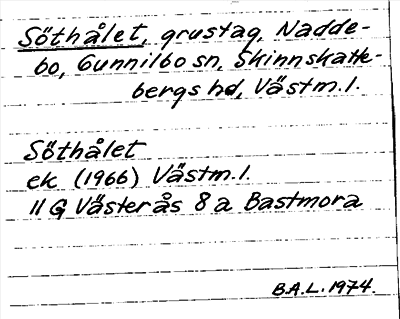 Söthålet, grustag, Nadde-
bo, Gunnilbo sn, Skinnskatte-
bergs hd, Västm.l.
Söthålet
ek (1966) Västm.l.
11 G Västerås 8 a Bastmora
B.A.L. 1974.